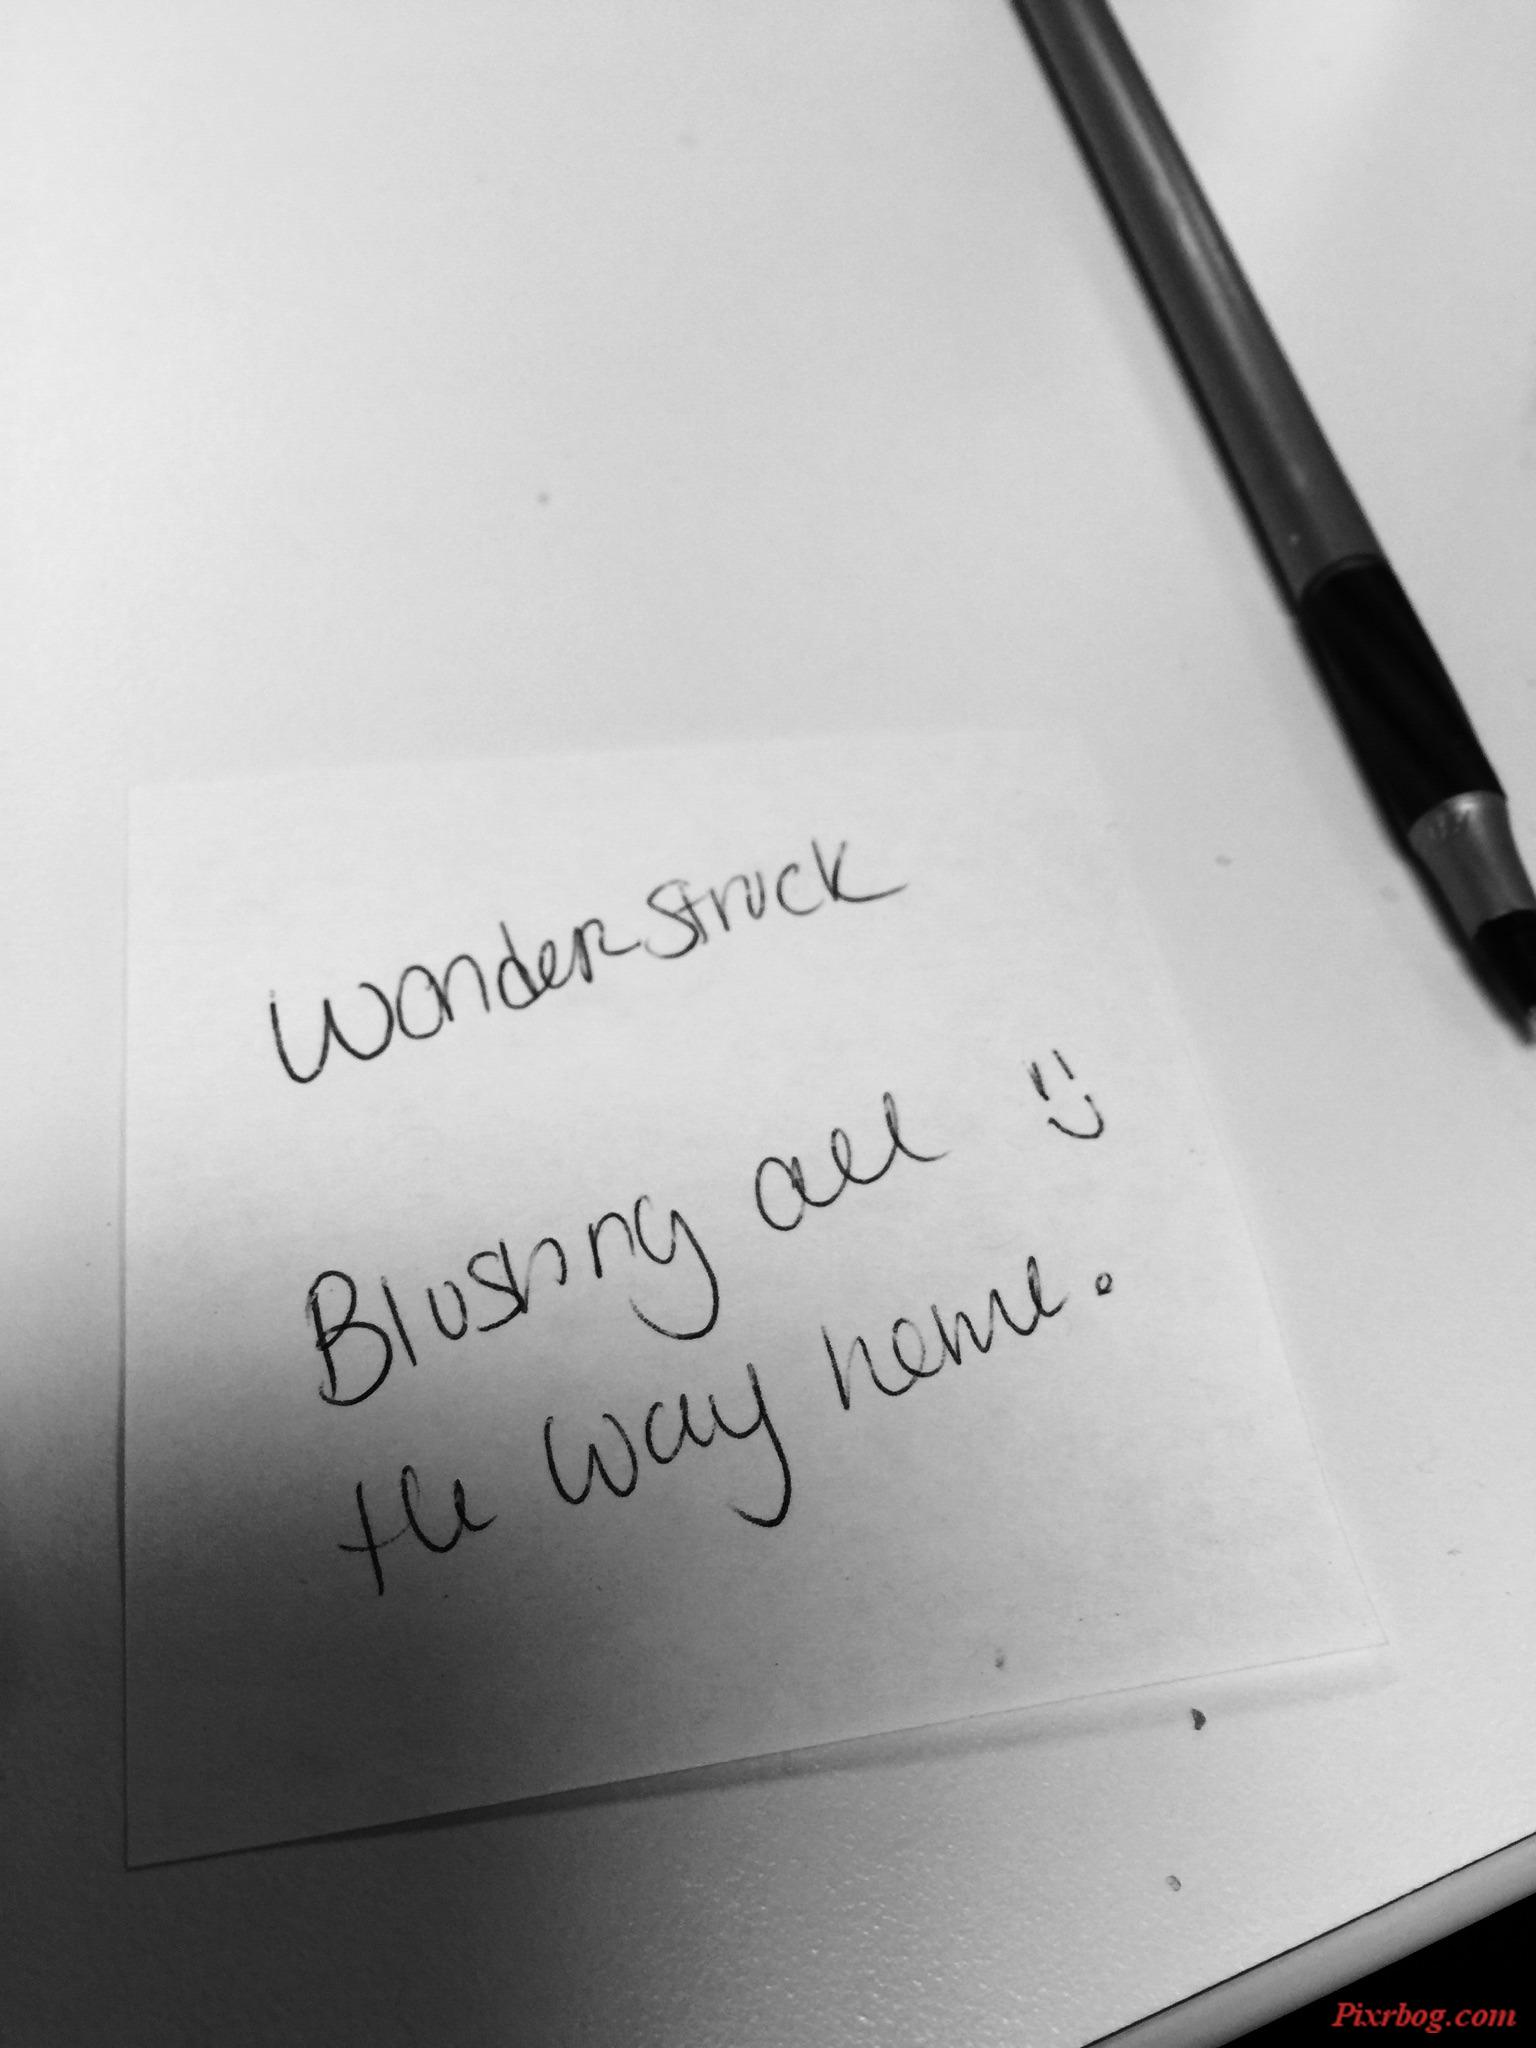 wonderstruck
Blushing all :)
the way home.
Pixrbog.com